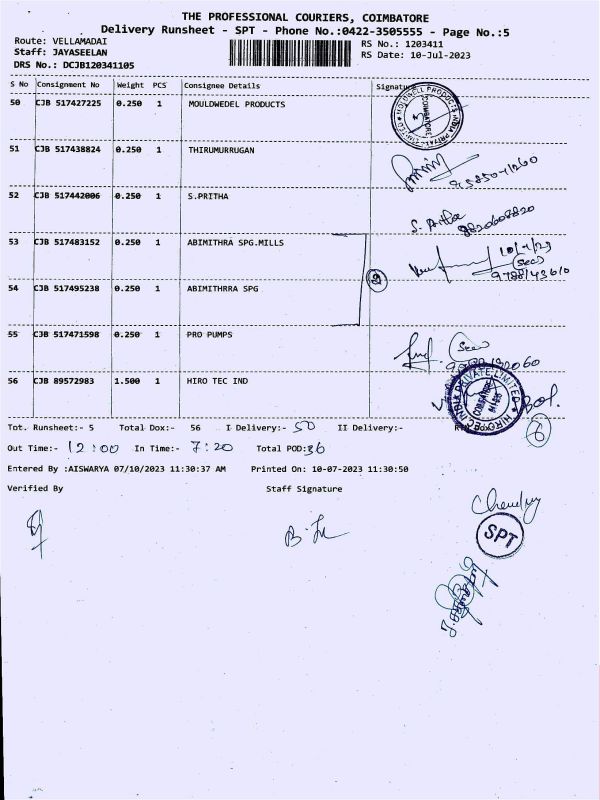 THE PROFESSIONAL COURIERS, COIMBATORE
Delivery Runsheet - SPT - Phone No.:0422-3505555 - Page No.:5
Route: VELLAMADAI RS No.: 1203411
Staff: JAYASEELAN RS Date: 10-Jul-2023
DRS No.: DCJB120341105
S No Consignment No Weight PCS Consignee Details Signature
50 CJB 517427225 0.250 1 MOULDWEDEL PRODUCTS
51 CJB 517438824 0.250 1 THIRUMURRUGAN
52 CJB 517442006 0.250 1 S.PRITHA
S. Pritha
53 CJB 517483152 0.250 1 ABIMITHRA SPG.MILLS
(Sec)
54 CJB 517495238 0.250 1 ABIMITHRRA SPG
55 CJB 517471598 0.250 1 PRO PUMPS
56 CJB 89572983 1.500 1 HIRO TEC IND
Tot. Runsheet:- 5 Total Dox:- 56 I Delivery:- 50 II Delivery:-
Out Time:- 12:00 In Time:- 7:20 Total POD:36
Entered By :AISWARYA 07/10/2023 11:30:37 AM Printed On: 10-07-2023 11:30:50
Verified By Staff Signature
SPT